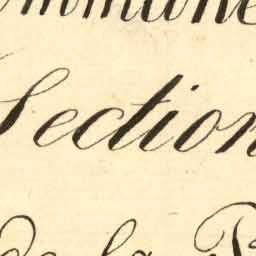 ommune
Section
de la P